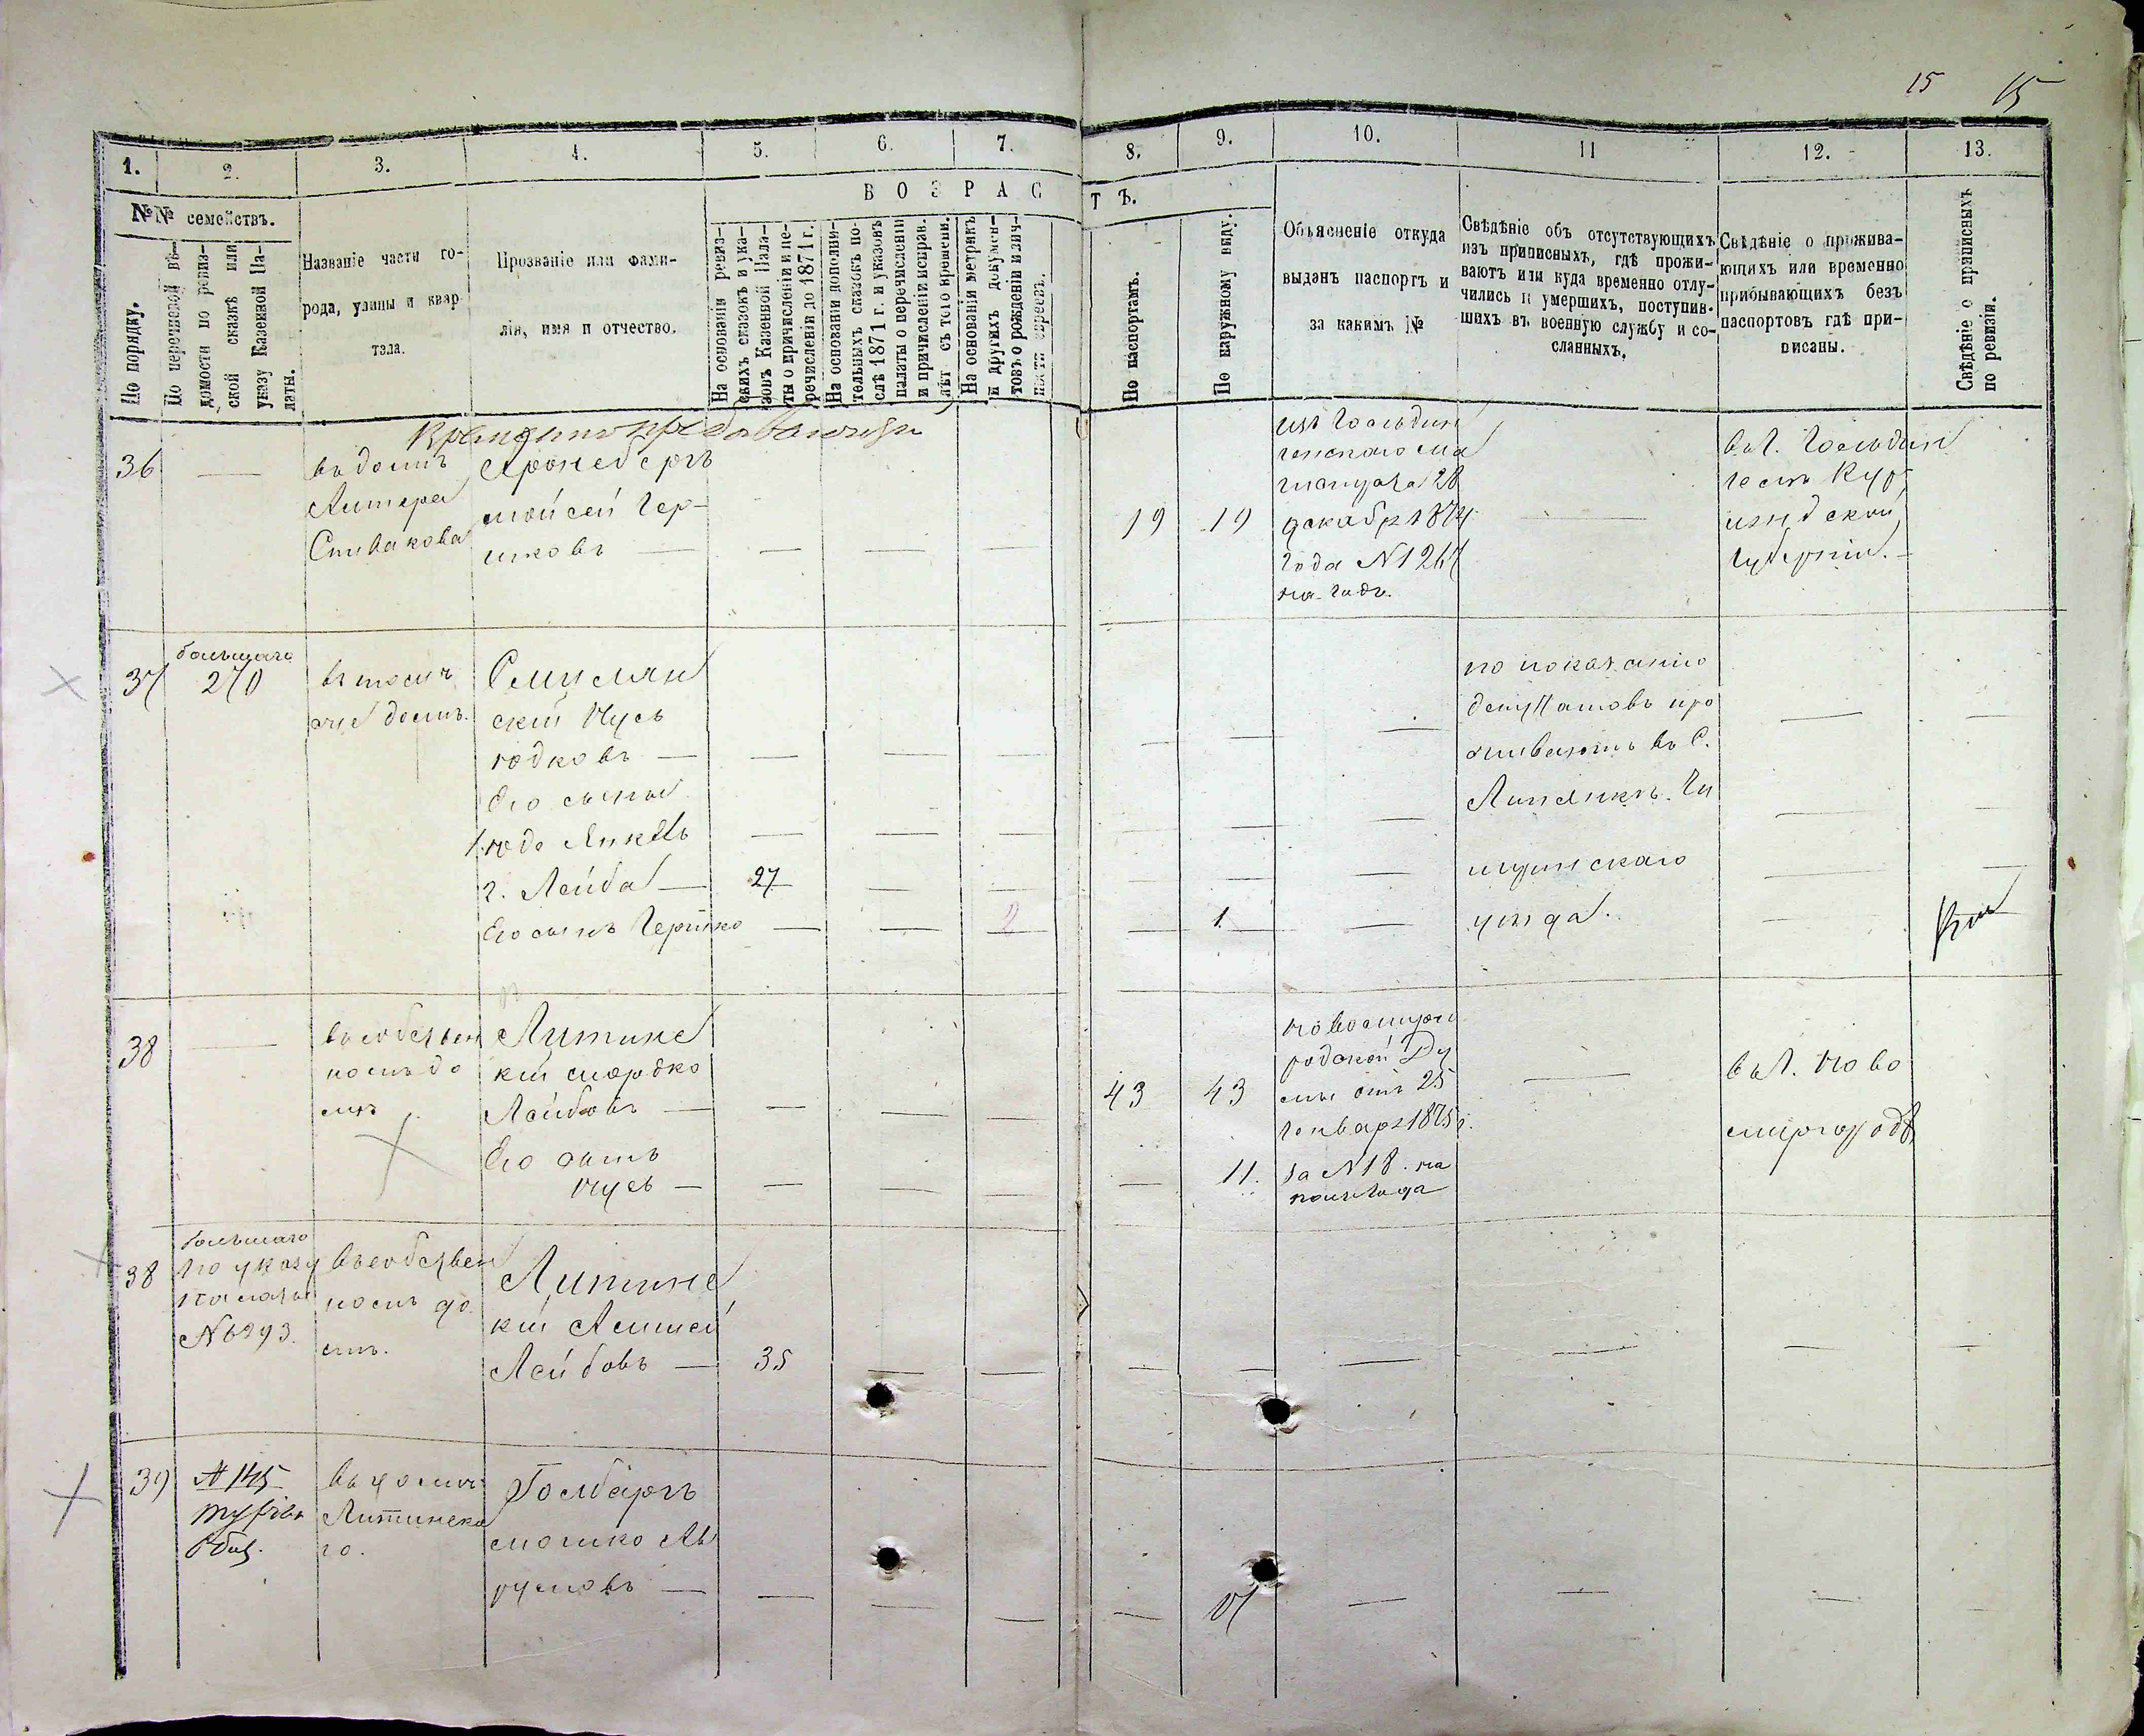 15 15
1. 2. 3. 4. 5. 6. 7. 8. 9. 10. 11 12. 13.
В О З Р А С Т Ъ.
№№ семействъ.
По порядку.
По перечневой вѣ-
домости по ревиз-
ской сказкѣ или
указу Казенной Па-
латы.
Названіе части го-
рода, улицы и квар-
тала.
Прозваніе или фами-
лія, имя и отчество.
На основаніи ревиз-
скихъ сказокъ и ука-
зовъ Казенной Пала-
ты о причисленіи и пе-
речисленіи до 1871 г.
На основаніи дополни-
тельныхъ сказокъ по-
слѣ 1871 г. и указовъ
палаты о перечисленіи
и причисленіи исправ.
лѣт съ того времени.
На основаніи метрикъ
и другихъ докумен-
товъ о рожденіи и лич-
ности евреевъ.
По паспортамъ.
По наружному виду.
Объясненіе откуда
выданъ паспортъ и
за какимъ №
Свѣдѣніе объ отсутствующихъ
изъ приписныхъ, гдѣ прожи-
ваютъ или куда временно отлу-
чились и умершихъ, поступив-
шихъ въ военную службу и со-
сланныхъ.
Свѣдѣніе о прожива-
ющихъ или временно
прибывающихъ безъ
паспортовъ гдѣ при-
писаны.
Свѣдѣніе о приписныхъ
по ревизіи.
36 —
въ домѣ
Литера
Спивакова
Аронсбергъ
Мойсей Гер-
шковъ — — — —
19 19
изъ Гольдин
генскаго ма
гистрата 28
декабря 1874
года N 1267
на годъ.
—
въ г. Гольдин
генѣ Кур
ляндской
губерніи. —
37
большаго
270
въ томъ
же домѣ.
Смилян
скій Нусь
Юдковъ — — —
Его сыны
1. Юдо Янкель — — —
2. Лейба — 27 — —
Его сынъ Гершко — — 2
— 1. —
по показанію
депутатовъ про
живаютъ въ С.
Липянкѣ. Чи
гиринскаго
уѣзда.
—
38 —
въ собствен
номъ до
мѣ
Литинс
кій Мордко
Лейбовъ — — — —
Его сынъ
Нусь — — — —
43 43
— 11.
Новомирго
родской Ду
мы отъ 25
Генваря 1875 г.
за N 18. на
полъ года
—
въ г. Ново
миргородѣ
38
большаго
по указу
палаты
N 6293.
въ собствен
номъ до
мѣ.
Литинс
кій
Лейбовъ — 35 — —
— — — — — —
39
N 145
въ домѣ
Литинска
го.
Голбергъ
Мошко Ав
румовъ — — — —
— 17 — — —